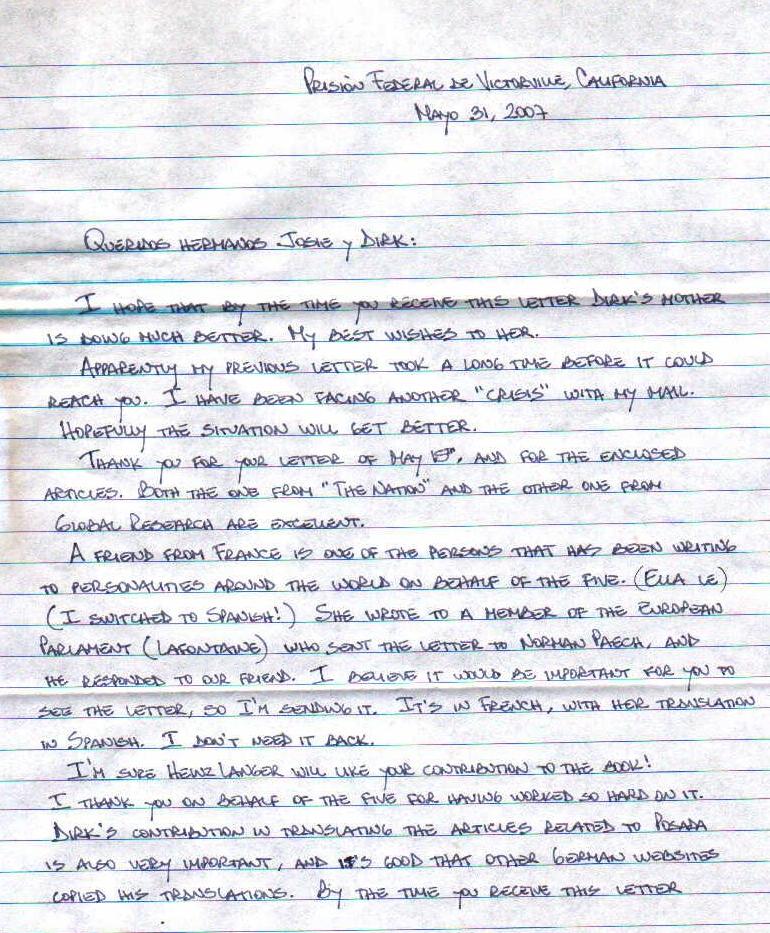 Prisión Federal de Victorville, California
Mayo 31, 2007
Queridos hermanos Josie y Dirk:
I hope that by the time you receive this letter Dirk's mother
is doing much better. My best wishes to her.
Apparently my previous letter took a long time before it could
reach you. I have been facing another "crisis" with my mail.
Hopefully the situation will get better.
Thank you for your letter of May , and for the enclosed
articles. Both the one from "The Nation" and the other one from
Global Research are excellent.
A friend from France is one of the persons that has been writing
to personalities around the world on behalf of the Five. (Ella le)
(I switched to Spanish!) She wrote to a member of the European
Parlament (Lafontaine) who sent the letter to Norman Paech, and
he responded to our friend. I believe it would be important for you to
see the letter, so I'm sending it. It's in French, with her translation
in Spanish. I don't need it back.
I'm sure Heinz Langer will like your contribution to the book!
I thank you on behalf of the Five for having worked so hard on it.
Dirk's contribution in translating the articles related to Posada
is also very important, and it's good that other German websites
copied his translations. By the time you receive this letter